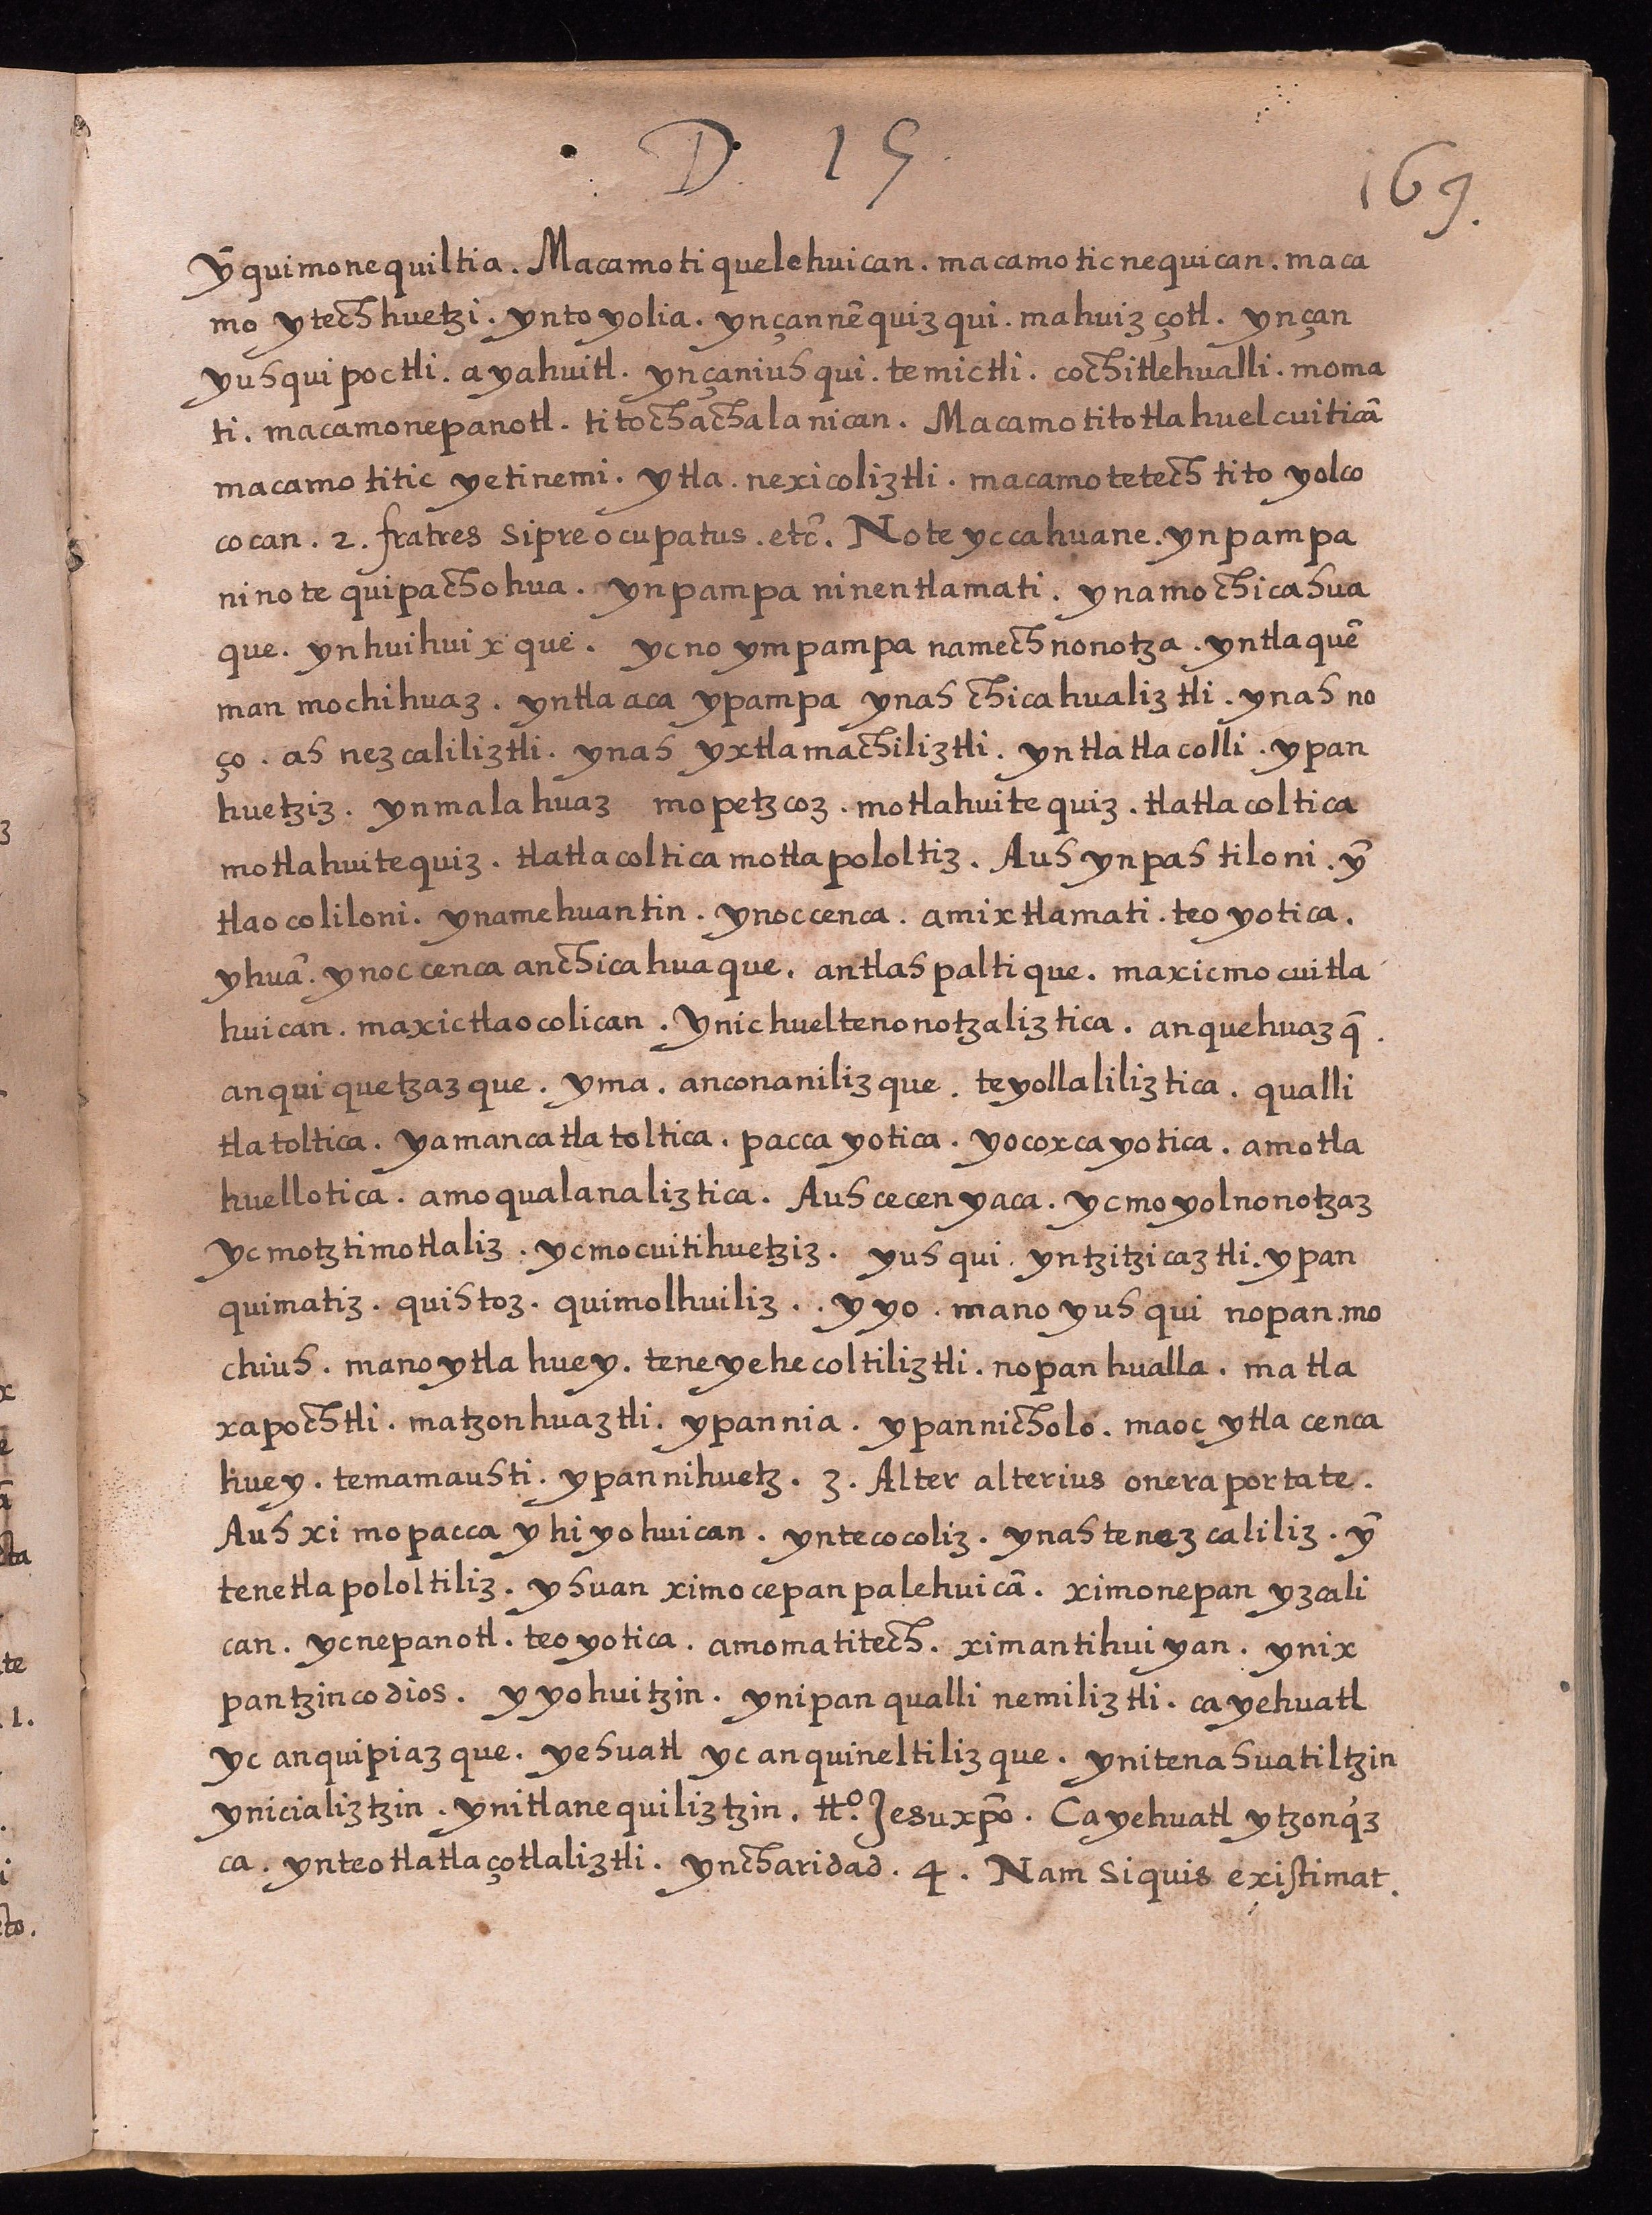 D. 15
169.
ȳquimonequiltia. Macamotiquelehuican. macamoticnequican. maca
mo ytech huetzi. yntoyolia. ynçannēquizqui. mahuizçotl. ynçan
yuhquipoctli. ayahuitl. ynçaniuhqui. temictli. cochitlehualli. moma
ti. macamonepanotl. titochachalanican. Macamotitotlahuelcuiticā
macamo titic yetinemi. ytla. nexicoliztli. macamotetech tito yolco
cocan. 2. fratres sipreocupatus. etc̄. Noteyccahuane. ynpampa
ninotequipachohua. ynpampa ninentlamati. ynamochicahua
que. ynhuihuixque. ycno ympampa namechnonotza. yntlaquē
man mochihuaz. yntla aca ypampa ynah chicahualiztli. ynah no
ço. ah nezcaliliztli. ynah yxtlamachiliztli. yntlatlacolli. ypan
huetziz. ynmalahuaz mopetzcoz. motlahuitequiz. tlatlacoltica
motlahuitequiz. tlatlacoltica motlapololtiz. Auh ynpahtiloni. ȳ
tlaocoliloni. ynamehuantin. ynoccenca. amixtlamati. teoyotica.
yhuā. ynoccenca anchicahuaque. antlahpaltique. maxicmocuitla
huican. maxictlaocolican. ynichueltenonotzaliztica. anquehuazq̄.
anquiquetzazque. yma. anconanilizque. teyollaliliztica. qualli
tlatoltica. yamancatlatoltica. paccayotica. yocoxcayotica. amotla
huellotica. amoqualanaliztica. Auh cecenyaca. ycmoyolnonotzaz
ycmotztimotlaliz. ycmocuitihuetziz. yuhqui. yntzitzicaztli. ypan
quimatiz. quihtoz. quimolhuiliz.. yyo. manoyuhqui nopan.mo
chiuh. manoytla huey. teneyehecoltiliztli. nopanhualla. matla
xapochtli. matzonhuaztli. ypannia. ypannicholo. maoc ytla cenca
huey. temamauhti. ypannihuetz. 3. Alter alterius oneraportate.
Auh ximopaccayhiyohuican. yntecocoliz. ynahtenezcaliliz. ȳ
tenetlapololtiliz. yhuan ximocepanpalehuicā. ximonepan yzcali
can. ycnepanotl. teoyotica. amomatitech. ximantihuiyan. ynix
pantzinco dios. yyohuitzin. ynipanqualli nemiliztli. cayehuatl
yc anquipiazque. yehuatl yc anquineltilizque. ynitenahuatiltzin
ynicializtzin. ynitlanequiliztzin. tto. Jesuxp̄o. Cayehuatl ytzonq́z
ca. ynteotlatlaçotlaliztli. yncharidad. 4. Nam siquis existimat.